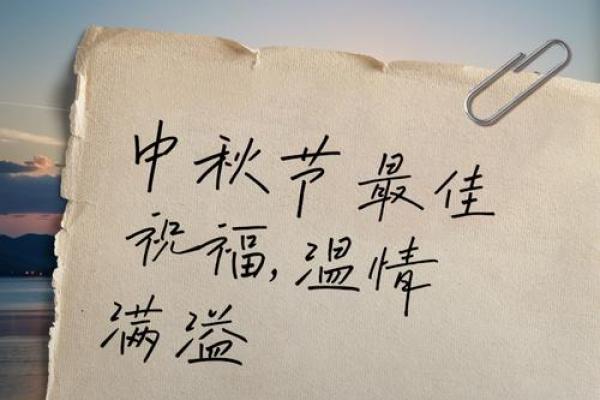 中秋节最佳
祝福,温情
满溢